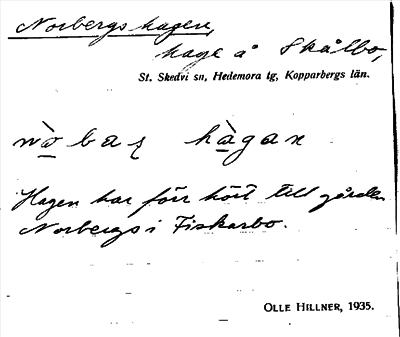 Norbergshagen,
hage å Skålbo,
St. Skedvi sn, Hedemora tg, Kopparbergs län.
nò̲baʂ hà̲gan
Hagen har förr hört till gården
Norbergs i Fiskarbo.
OLLE HILLNER, 1935.